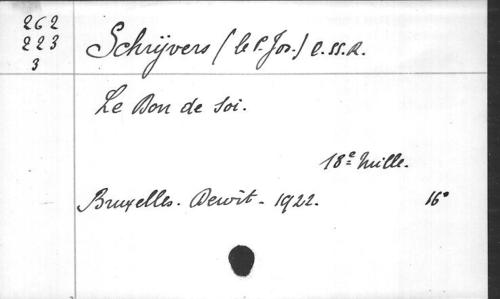 262
223
3
Schrijvers (le P. Jos.) C.SS.R.
Le Don de Soi.
18e mille.
Bruxelles. Dewit - 1922. 16°